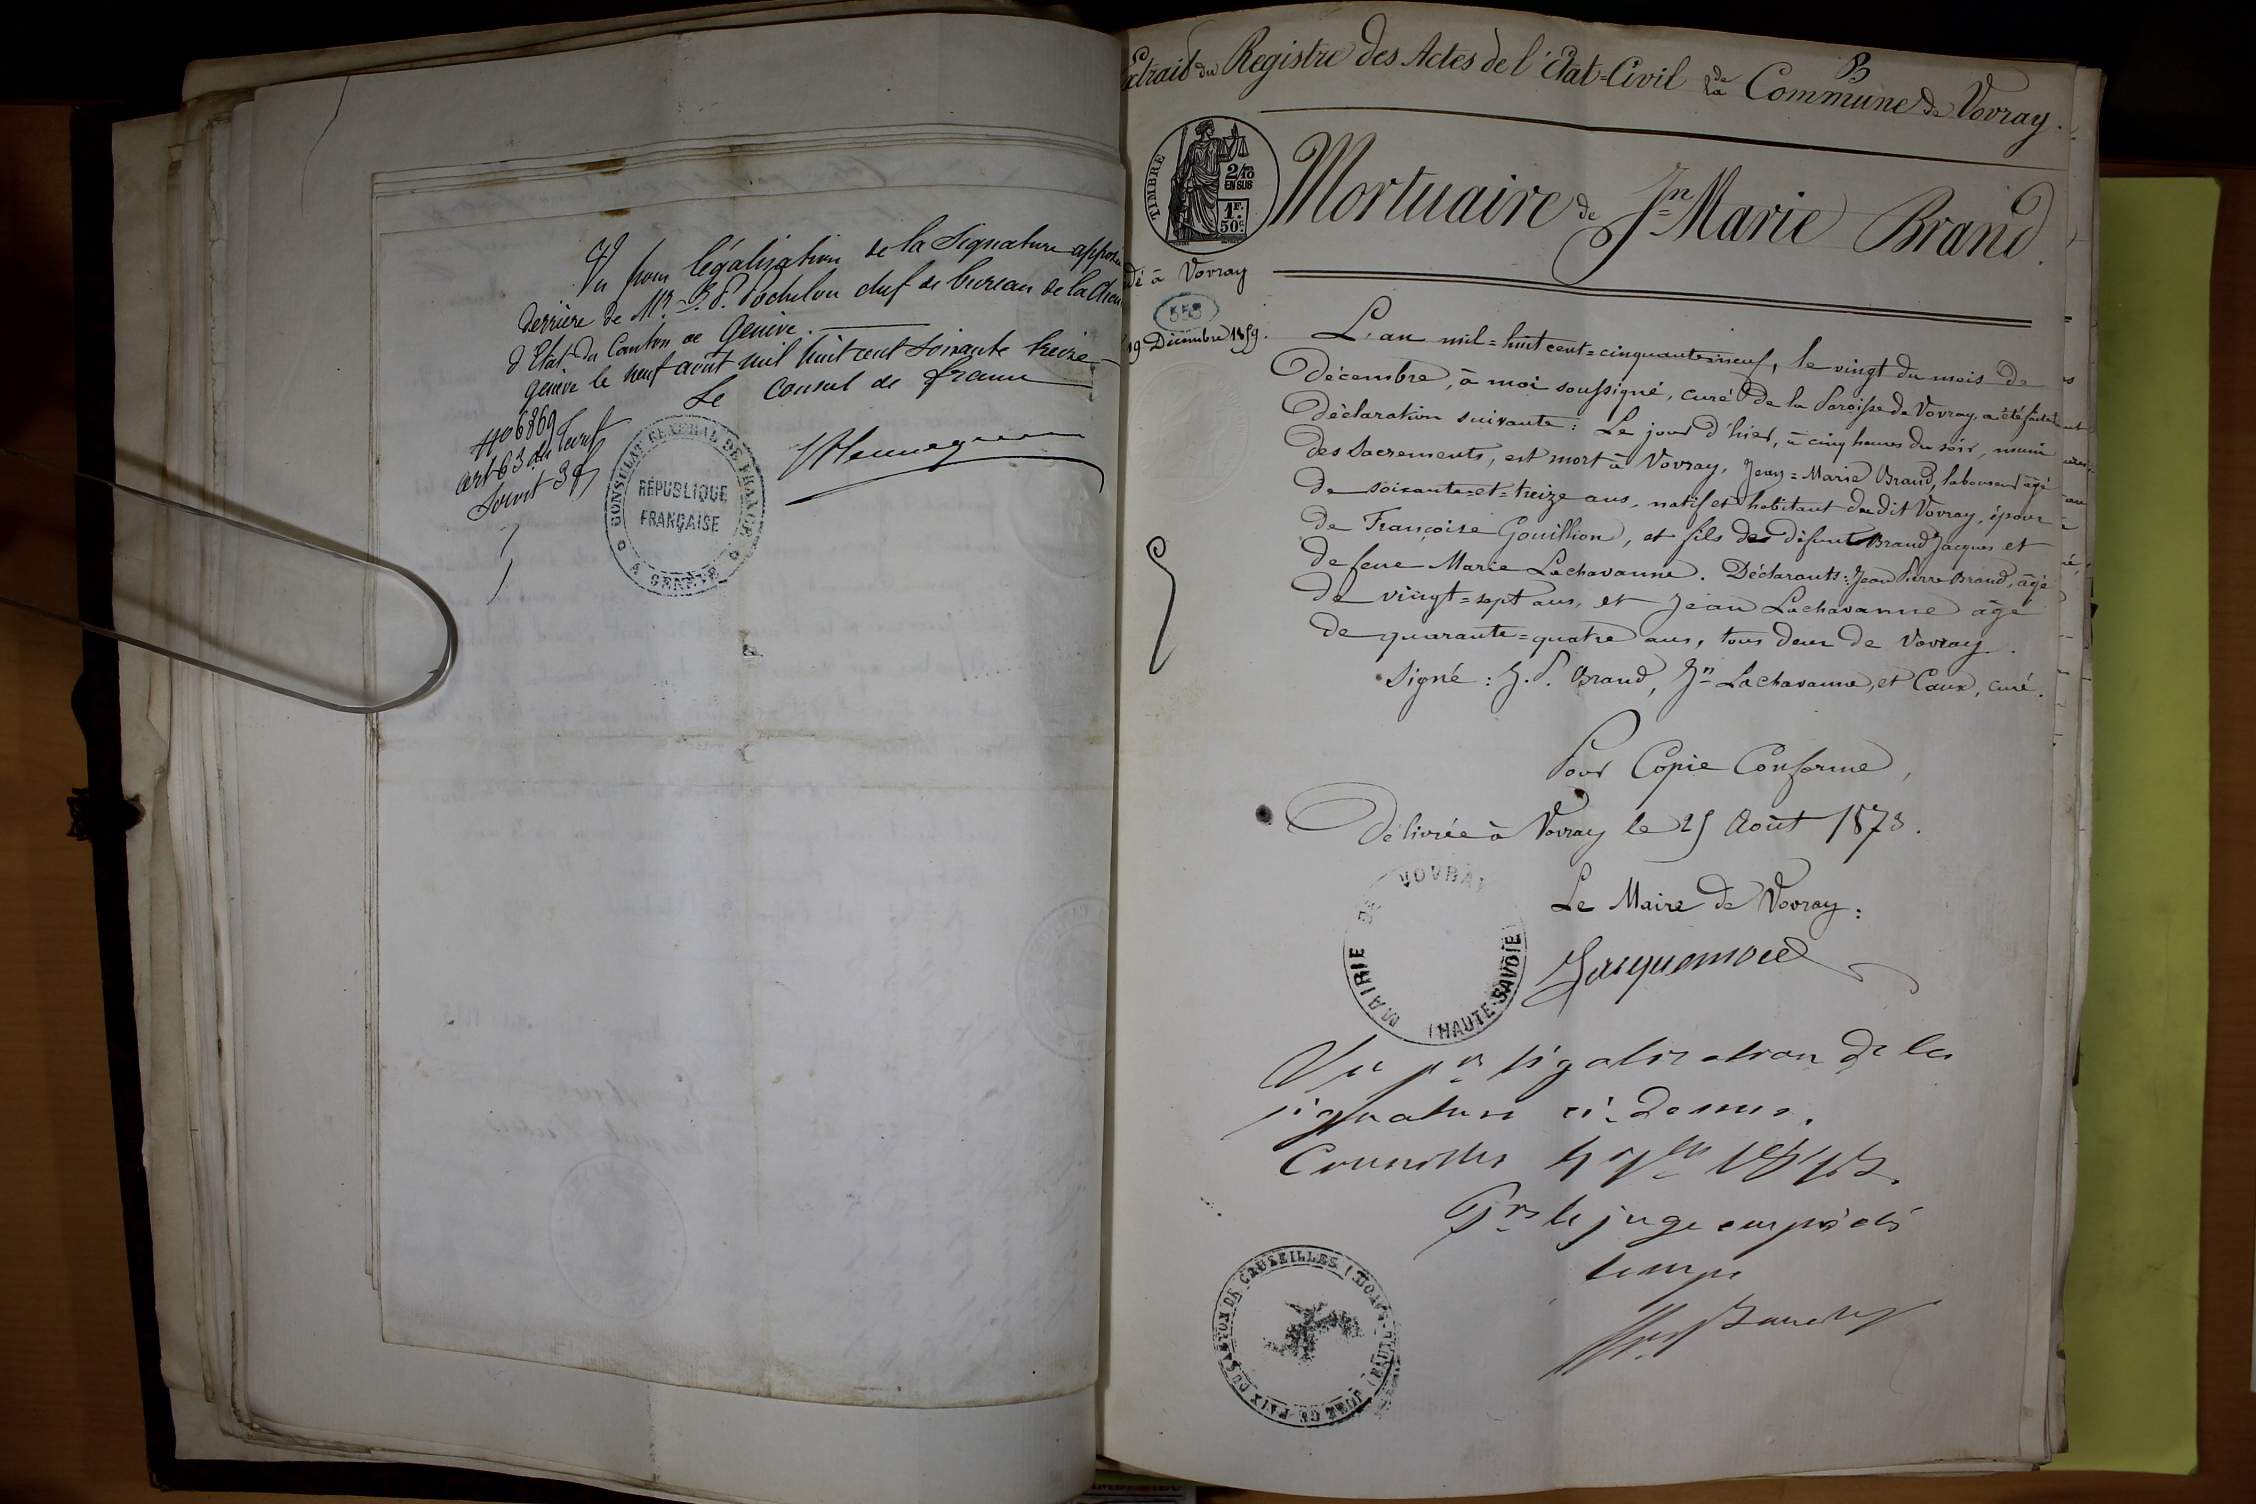 Vu pour légalisation de la Signature apposée
derrière de Mr. J. P. Pochelon chef de bureau de la Chan
d'Etat du Canton de Genève.
Genève le neuf août mil huit cent soixante treize
Le Consul de France
No 6869
art 63 du tarif
CONSULAT GÉNÉRAL DE FRANCE
RÉPUBLIQUE
FRANÇAISE
A GENÈVE
B
Extrait du Registre des Actes de l'État-Civil de la Commune de Vovray.
TIMBRE
2/10
EN SUS
1F.
50c
Mortuaire de Jn Marie Brand.
dé à Vovray
558
19 Décembre 1859.
L'an mil=huit cent=cinquante=neuf, le vingt du mois de
décembre, à moi soussigné, curé de la Paroisse de Vovray, a été faite la
déclaration suivante: Le jour d'hier, à cinq heures du soir, muni
des Sacrements, est mort à Vovray, Jean=Marie Brand, laboureur âgé
de soixante=et=treize ans, natif et habitant du dit Vovray, époux
de Françoise Gouillion, et fils des défunt Brand Jacques et
de feue Marie Lachavanne. Déclarants: Jean Pierre Brand, âgé
de vingt=sept ans, et Jean Lachavanne âgé
de quarante=quatre ans, tous deux de Vovray.
Signé: J. P. Brand, Jn Lachavanne, et Caux, curé.
Pour Copie Conforme,
Délivrée à Vovray le 25 Août 1873.
Le Maire de Vovray:
Jacquemoud
MAIRIE DE VOVRAY
(HAUTE-SAVOIE)
Vu pr légalisation de la
signature ci-dessus.
Cruseilles
Pr le juge empêché
JUGE DE PAIX DU CANTON DE CRUSEILLES (HAUTE-SAVOIE)